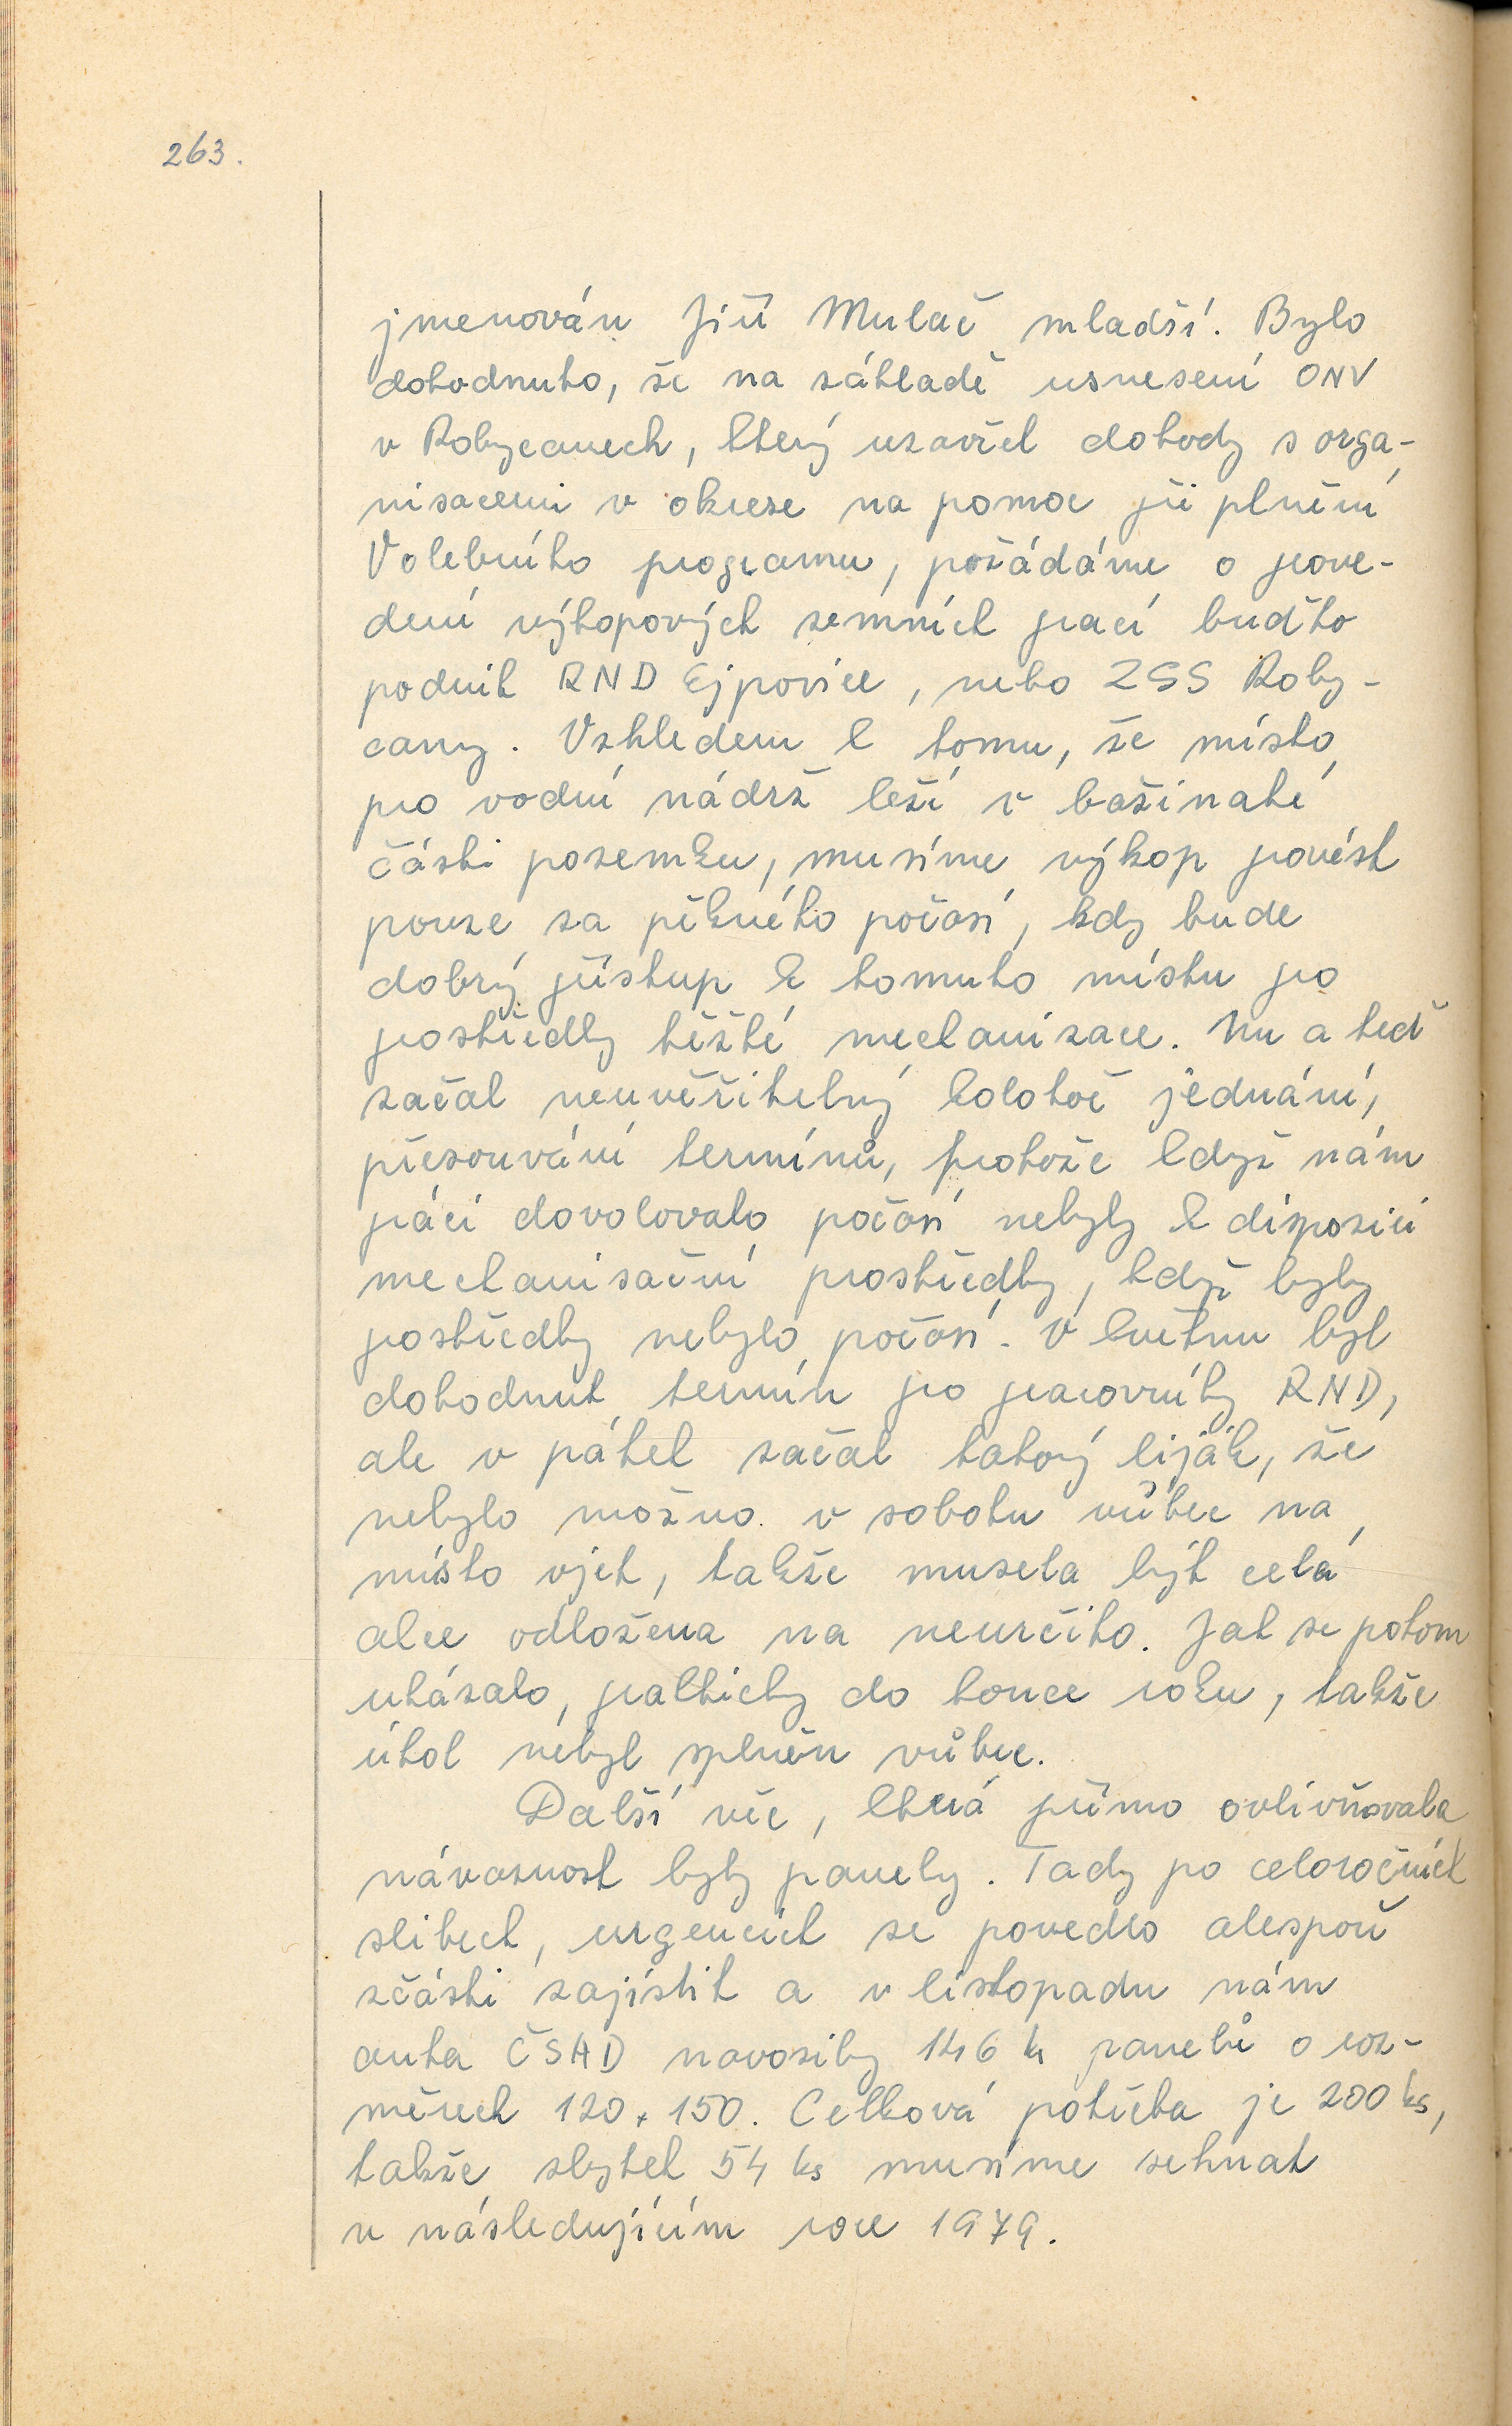 263.
jmenován Jiří Mulač mladší. Bylo
dohodnuto, že na základě usnesení ONV
v Rokycanech, který uzavřel dohody s orga-
nisacemi v okrese na pomoc při plnění
Volebního programu, požádáme o prove-
dení výkopových zemních prací buďto
podnik RND Ejpovice, nebo ZSS Roky-
cany. Vzhledem k tomu, že místo
pro vodní nádrž leží v bažinaté
části pozemku, musíme výkop provést
pouze za pěkného počasí, kdy bude
dobrý přístup k tomuto místu pro
prostředky těžké mechanizace. Nu a teď
začal neuvěřitelný kolotoč jednání,
přesouvání termínů, protože když nám
práci dovolovalo počasí nebyly k disposici
mechanisační prostředky, když byly
prostředky nebylo počasí. V květnu byl
dohodnut termín pro pracovníky RND,
ale v pátek začal takový liják, že
nebylo možno v sobotu vůbec na
místo vjet, takže musela být celá
akce odložena na neurčito. Jak se potom
ukázalo, prakticky do konce roku, takže
úkol nebyl splněn vůbec.
Další věc, která přímo ovlivňovala
návaznost byly panely. Tady po celoročních
slibech, urgencích se povedlo alespoň
zčásti zajistit a v listopadu nám
auta ČSAD navozily 146 ks panelů o roz-
měrech 120 x 150. Celková potřeba je 200 ks,
takže zbytek 54 ks musíme sehnat
v následujícím roce 1979.